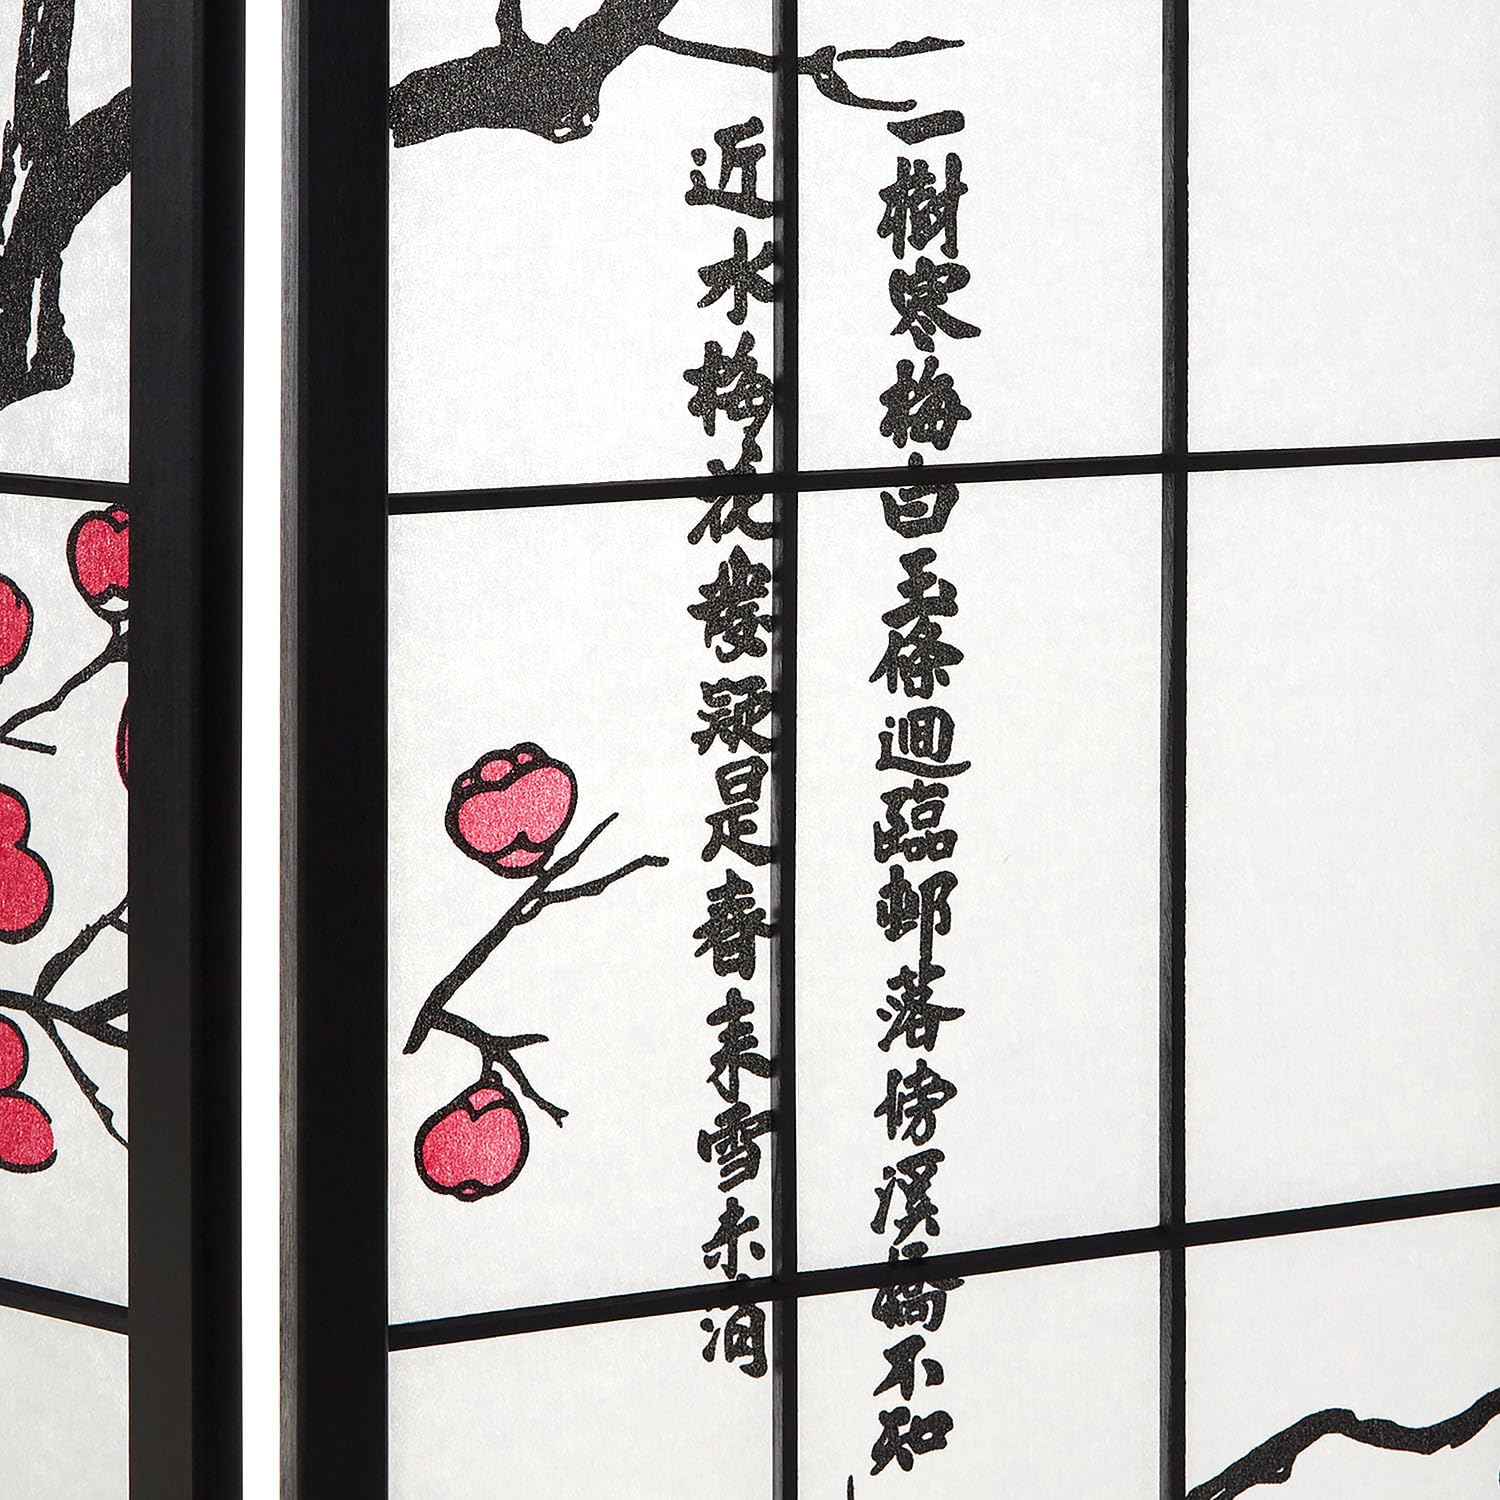 一樹寒梅白玉條迴臨邨落傍溪橋不知
近水梅花發疑是春來雪未消